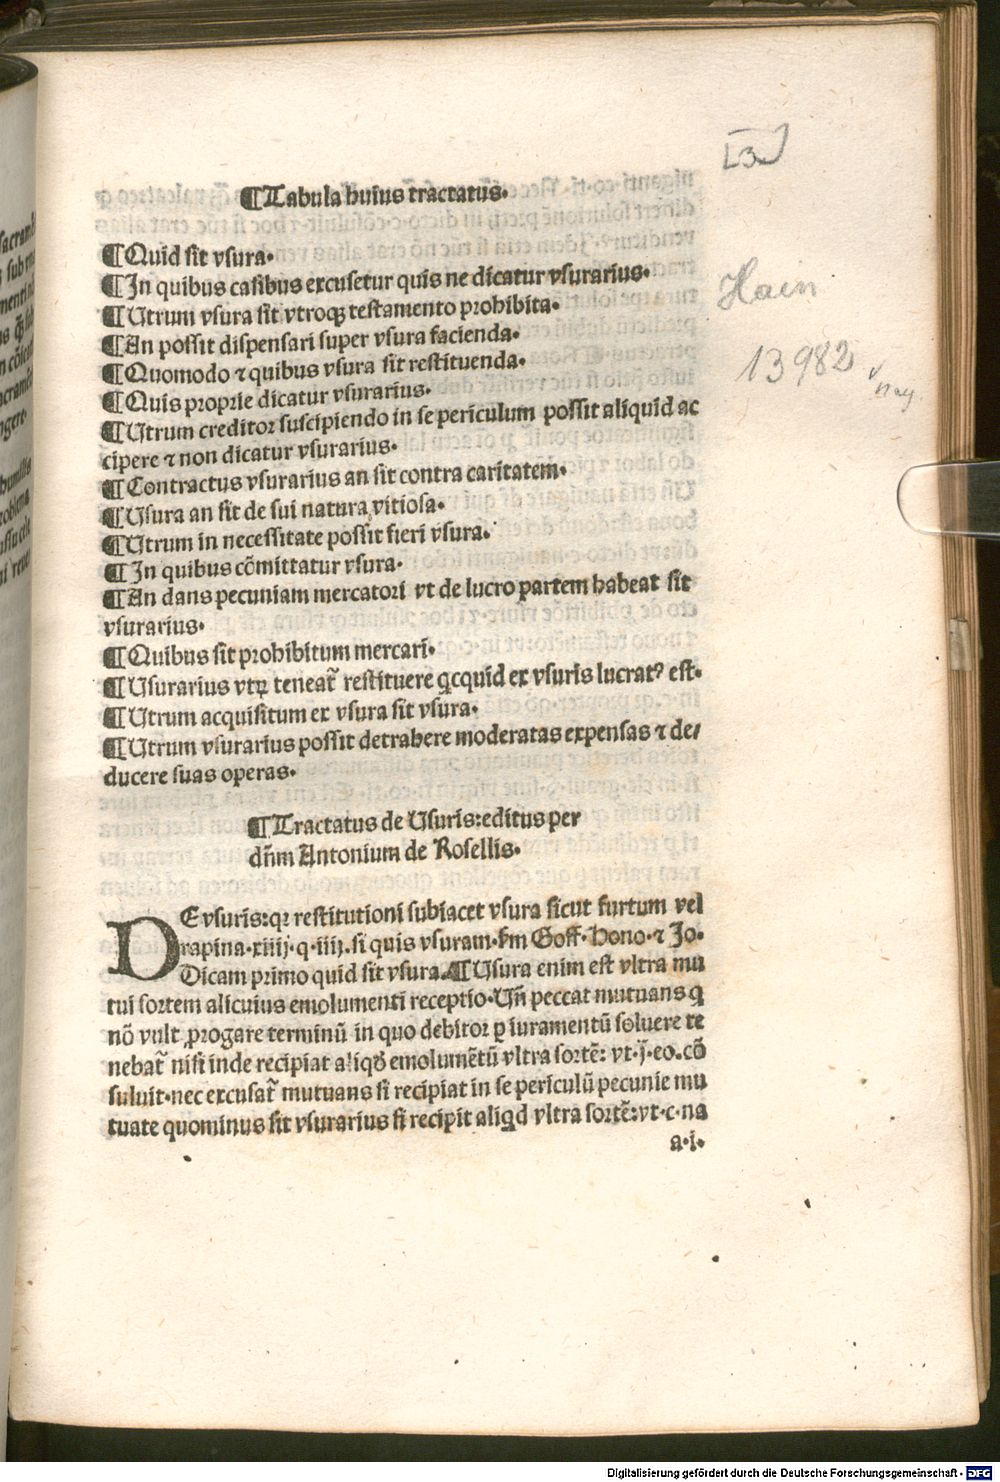 [3]
¶Tabula huius tractatus.
¶Quid sit vsura.
¶In quibus casibus excusetur quis ne dicatur vsurarius.
¶Utrum vsura sit vtroqꝫ testamento prohibita.
¶An possit dispensari super vsura facienda.
¶Quomodo ⁊ quibus vsura sit restituenda.
¶Quis proprie dicatur vsurarius.
¶Utrum creditor suscipiendo in se periculum possit aliquid ac
cipere ⁊ non dicatur vsurarius.
¶Contractus vsurarius an sit contra caritatem.
¶Usura an sit de sui natura vitiosa.
¶Utrum in necessitate possit fieri vsura.
¶In quibus cõmittatur vsura.
¶An dans pecuniam mercatori vt de lucro partem habeat sit
vsurarius.
¶Quibus sit prohibitum mercari.
¶Usurarius vtꝝ teneat᷑ restituere qcquid ex vsuris lucratꝰ est.
¶Utrum acquisitum ex vsura sit vsura.
¶Utrum vsurarius possit detrahere moderatas expensas ⁊ de/
ducere suas operas.
¶Tractatus de Usuris: editus per
dñm Antonium de Rosellis.
DE vsuris: qꝛ restitutioni subiacet vsura sicut furtum vel
rapina. xiiij. q. iiij. si quis vsuram. ẜm Goff. Hono. ⁊ Jo.
Dicam primo quid sit vsura. ¶Usura enim est vltra mu
tui sortem alicuius emolumenti receptio. Uñ peccat mutuans q
nõ vult ꝓrogare terminũ in quo debitor ꝑ iuramentũ soluere te
nebat᷑ nisi inde recipiat aliqď emolumẽtũ vltra sortẽ: vt. j. eo. cõ
suluit. nec excusat᷑ mutuans si recipiat in se periculũ pecunie mu
tuate quominus sit vsurarius si recipit aliqd vltra sortẽ: vt. c. na
a.i.
Hain
13982
Digitalisierung gefördert durch die Deutsche Forschungsgemeinschaft - DFG